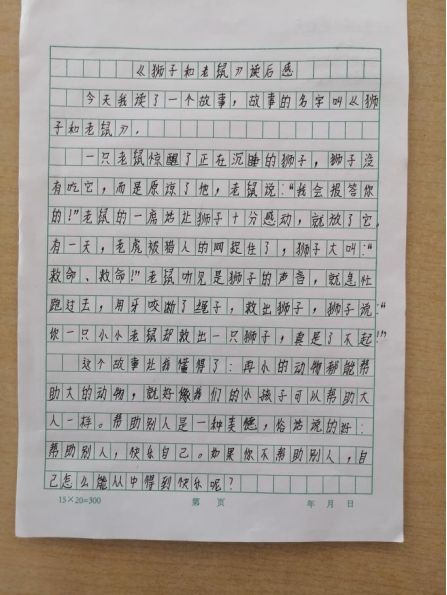 《狮子和老鼠》读后感
今天我读了一个故事，故事的名字叫《狮
子和老鼠》.
一只老鼠惊醒了正在沉睡的狮子，狮子没
有吃它，而是原谅了他，老鼠说："我会报答你
的!"老鼠的一席话让狮子十分感动，就放了它，
有一天，老虎被猎人的网捉住了，狮子大叫："
救命、救命!"老鼠听见是狮子的声音，就急忙
跑过去，用牙咬断了绳子，救出狮子，狮子说："
你一只小小老鼠却救出一只狮子，真是了不起!"
这个故事让我懂得了：再小的动物都能帮
助大的动物，就好像我们的小孩子可以帮助大
人一样。帮助别人是一种美德，俗话说的好：
帮助别人，快乐自己。如果你不帮助别人，自
己怎么能从中得到快乐呢？
15×20=300 第 页 年 月 日